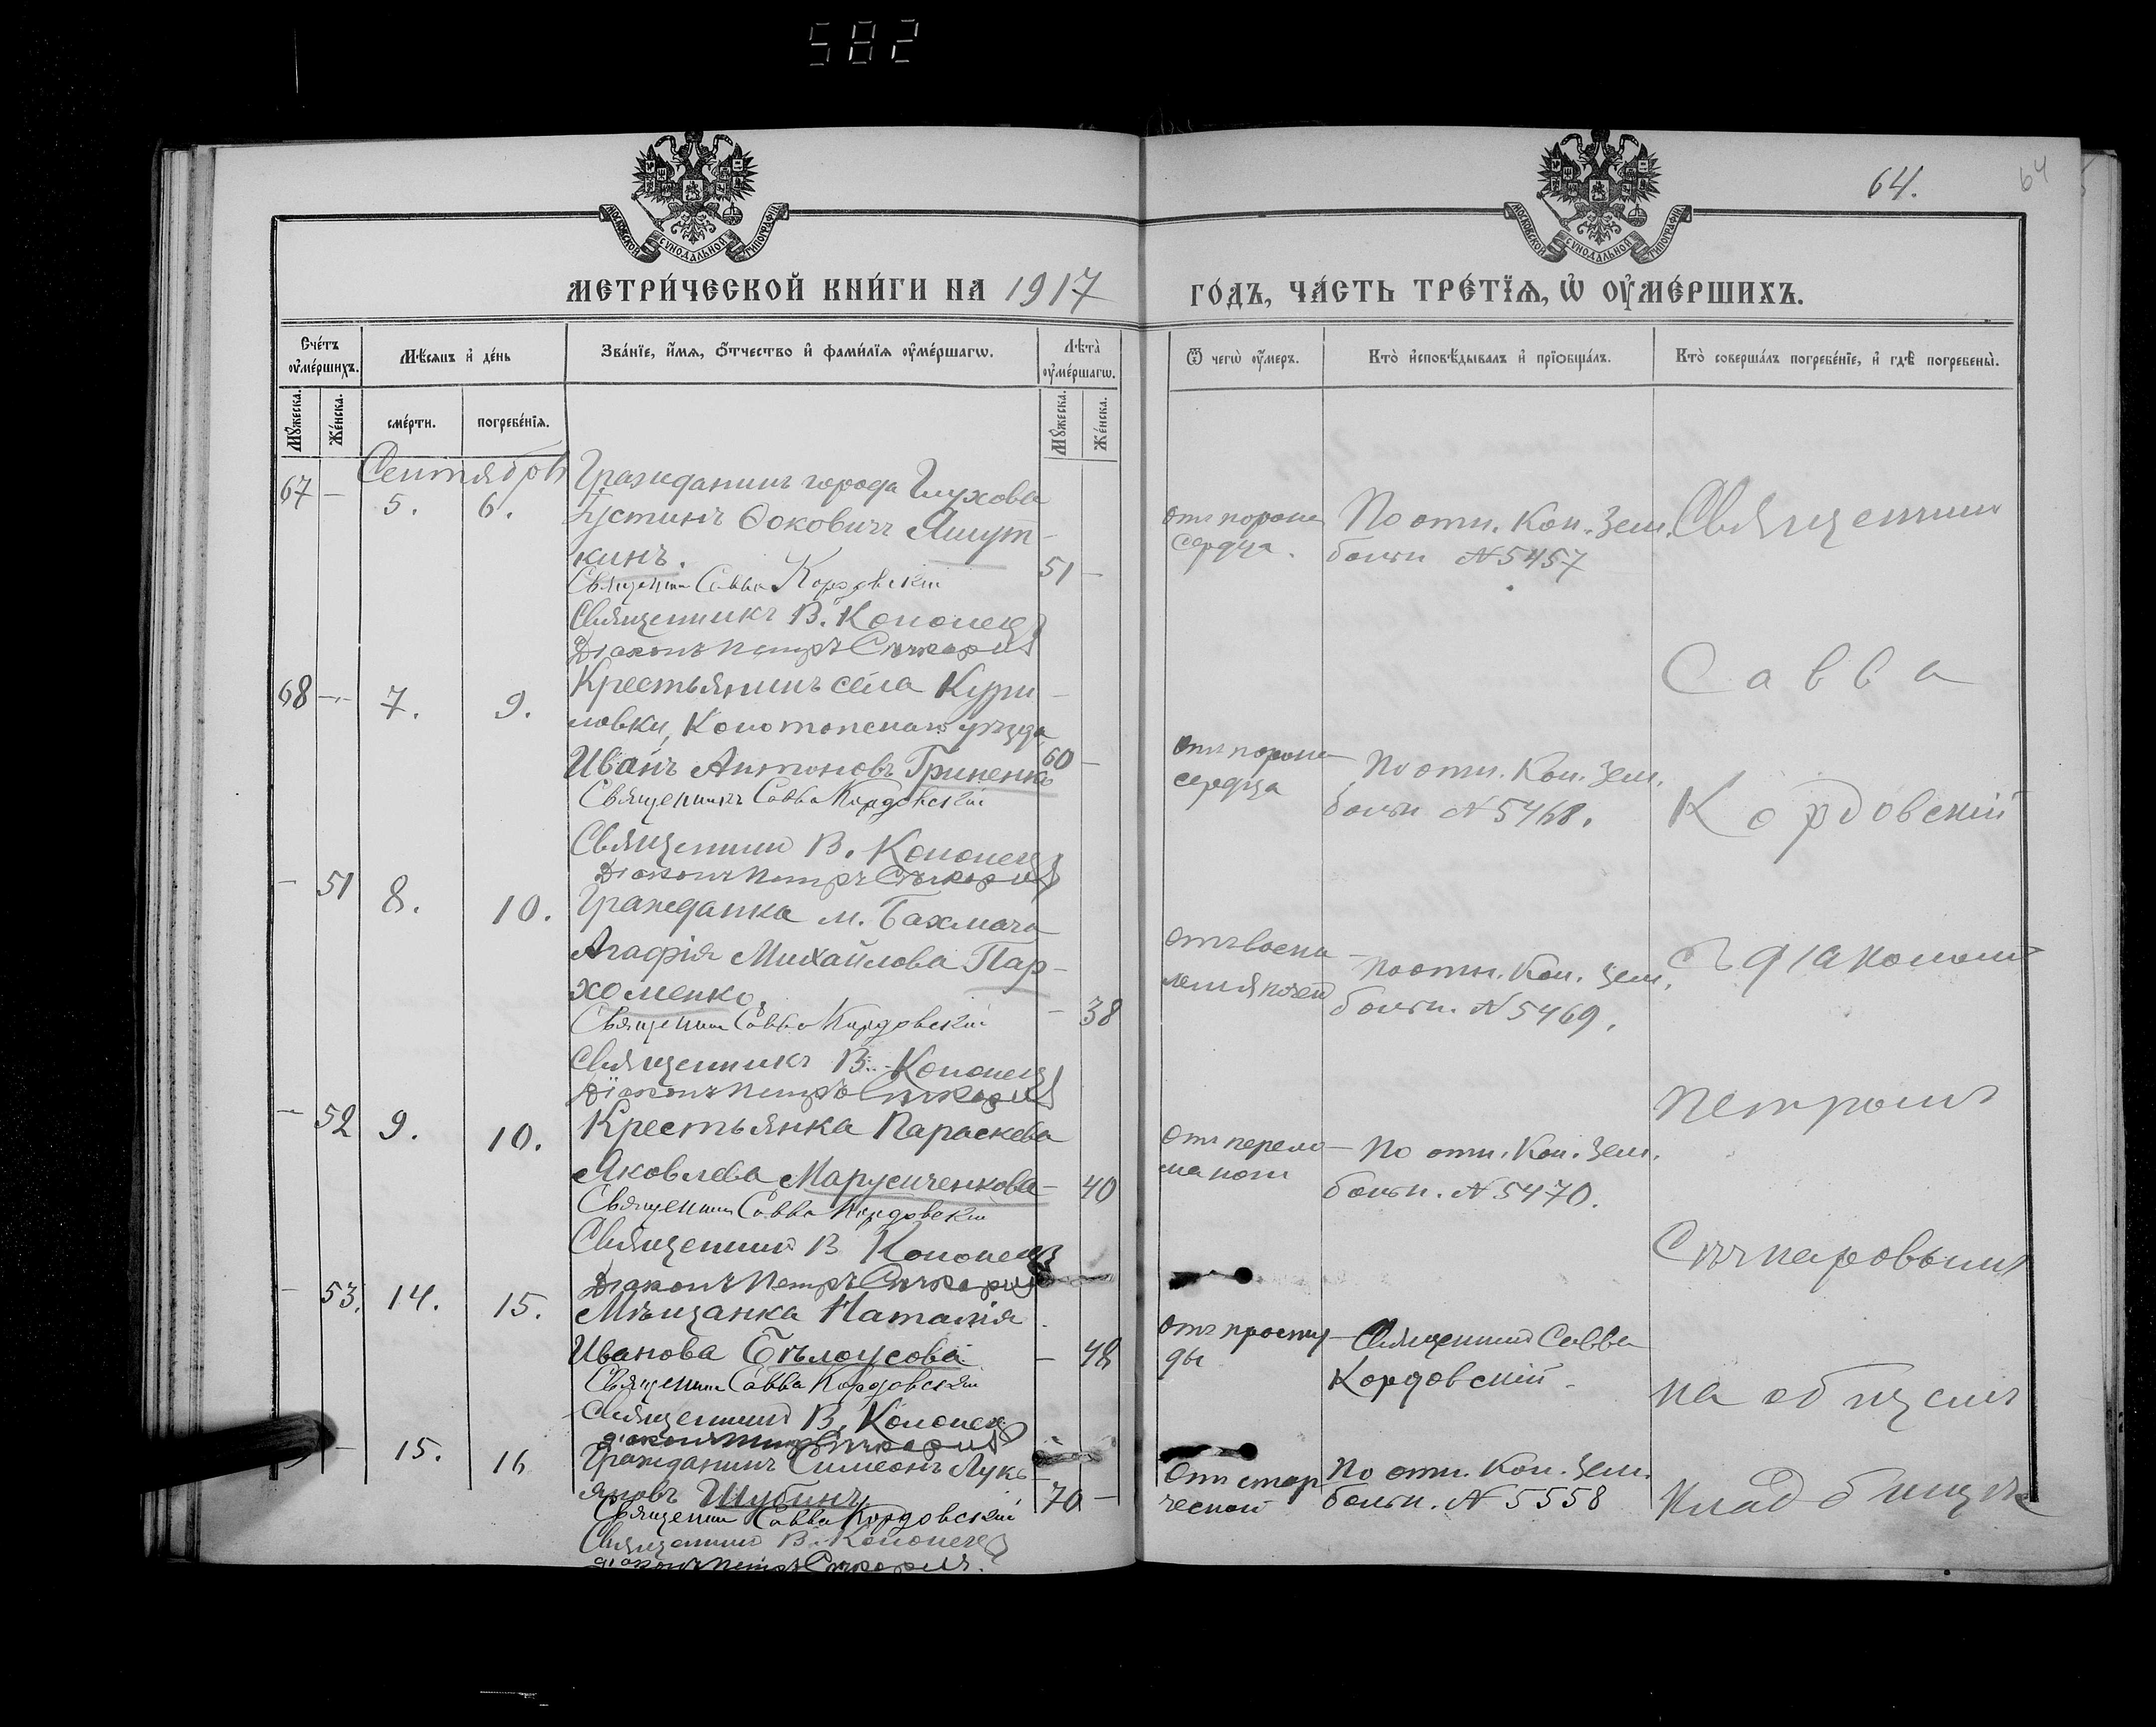 582
64.
64
МОСКОВСКОЙ СѴНОДАЛЬНОЙ ТИПОГРАФІИ
МОСКОВСКОЙ СѴНОДАЛЬНОЙ ТИПОГРАФІИ
МЕТРИ́ЧЕСКОЙ КНИ́ГИ НА 1917
ГО́ДЪ, ЧА́СТЬ ТРЕ́ТЇѦ, Ѡ҆ ОУ҆МЕ́РШИХЪ.
Сче́тъ оу҆ме́ршихъ.
Мꙋ́жеска.
Же́нска.
Мѣ́сѧцъ и҆ де́нь
сме́рти.
погребе́нїѧ.
Зва́нїе, и҆́мѧ, ѻ҆́тчество и҆ фами́лїѧ оу҆ме́ршагѡ.
Лѣ́та оу҆ме́ршагѡ.
Мꙋ́жеска.
Же́нска.
Ѿ чегѡ̀ оу҆́меръ.
Кто̀ и҆сповѣ́дывалъ и҆ прїѡбща́лъ.
Кто̀ соверша́лъ погребе́нїе, и҆ гдѣ̀ погребены̀.
Сентябрь
67 – 5. 6. Гражданинъ города Глухова
Іустинъ Фоковичъ Яшут-
кинъ. 51 –
Священникъ Савва Кордовскій
Священникъ В. Кононецъ
Діаконъ Петръ Сѣкаръ
отъ порока
сердца.
По отн. Кон. Зем.
больн. № 5457
68 – 7. 9. Крестьянинъ села Кури-
ловки, Конотопскаго уѣзда
Иванъ Антоновъ Гриненко 60 –
Священникъ Савва Кордовскій
Священникъ В. Кононецъ
Діаконъ Петръ Сѣкаръ
отъ порока
сердца
По отн. Кон. Зем.
больн. № 5468.
– 51 8. 10. Гражданка м. Бахмача
Агафія Михайлова Пар-
хоменко. – 38
Священникъ Савва Кордовскій
Священникъ В. Кононецъ
Діаконъ Петръ Сѣкаръ
отъ воспа-
ленія почекъ
По отн. Кон. Зем.
больн. № 5469.
– 52 9. 10. Крестьянка Параскева
Яковлева Марусиченкова – 40
Священникъ Савва Кордовскій
Священникъ В. Кононецъ
Діаконъ Петръ Сѣкаръ
отъ перело-
ма ноги
По отн. Кон. Зем.
больн. № 5470.
– 53. 14. 15. Мѣщанка Наталія
Иванова Бѣлоусова – 48
Священникъ Савва Кордовскій
Священникъ В. Кононецъ
Діаконъ Петръ Сѣкаръ
отъ просту-
ды
Священникъ Савва
Кордовскій.
– 15. 16 Гражданинъ Симеонъ Лукь-
яновъ Шубинъ 70 –
Священникъ Савва Кордовскій
Священникъ В. Кононецъ
Діаконъ Петръ Сѣкаръ.
отъ стар-
ческой
По отн. Кон. Зем.
больн. № 5558
Священникъ
Савва
Кордовскій
съ діакономъ
Петромъ
на общемъ
кладбищѣ